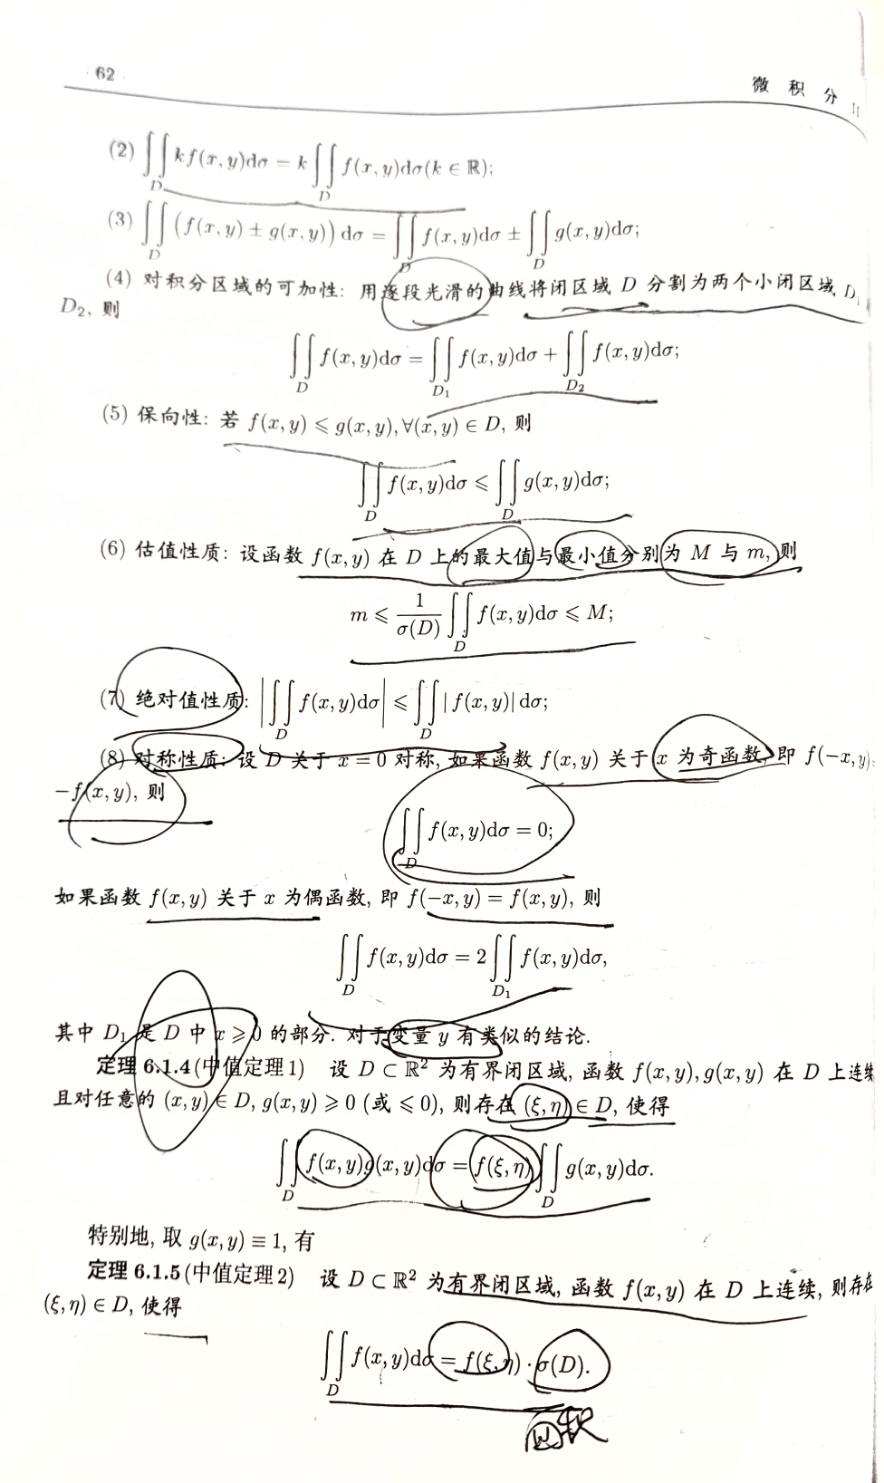 62
微 积 分 II
(2) ∬_D kf(x,y)dσ = k∬_D f(x,y)dσ(k ∈ ℝ);
(3) ∬_D (f(x,y) ± g(x,y)) dσ = ∬_D f(x,y)dσ ± ∬_D g(x,y)dσ;
(4) 对积分区域的可加性: 用逐段光滑的曲线将闭区域 D 分割为两个小闭区域 D₁
D₂, 则
∬_D f(x,y)dσ = ∬_D₁ f(x,y)dσ + ∬_D₂ f(x,y)dσ;
(5) 保向性: 若 f(x,y) ⩽ g(x,y), ∀(x,y) ∈ D, 则
∬_D f(x,y)dσ ⩽ ∬_D g(x,y)dσ;
(6) 估值性质: 设函数 f(x,y) 在 D 上的最大值与最小值分别为 M 与 m, 则
m ⩽ 1/σ(D) ∬_D f(x,y)dσ ⩽ M;
(7) 绝对值性质: |∬_D f(x,y)dσ| ⩽ ∬_D |f(x,y)| dσ;
(8) 对称性质: 设 D 关于 x = 0 对称, 如果函数 f(x,y) 关于 x 为奇函数, 即 f(−x,y)=
−f(x,y), 则
∬_D f(x,y)dσ = 0;
如果函数 f(x,y) 关于 x 为偶函数, 即 f(−x,y) = f(x,y), 则
∬_D f(x,y)dσ = 2∬_D₁ f(x,y)dσ,
其中 D₁ 是 D 中 x ⩾ 0 的部分. 对于变量 y 有类似的结论.
定理 6.1.4(中值定理1) 设 D ⊂ ℝ² 为有界闭区域, 函数 f(x,y), g(x,y) 在 D 上连续
且对任意的 (x,y) ∈ D, g(x,y) ⩾ 0 (或 ⩽ 0), 则存在 (ξ,η) ∈ D, 使得
∬_D f(x,y)g(x,y)dσ = f(ξ,η)∬_D g(x,y)dσ.
特别地, 取 g(x,y) ≡ 1, 有
定理 6.1.5(中值定理2) 设 D ⊂ ℝ² 为有界闭区域, 函数 f(x,y) 在 D 上连续, 则存在
(ξ,η) ∈ D, 使得
∬_D f(x,y)dσ = f(ξ,η) · σ(D).
面积